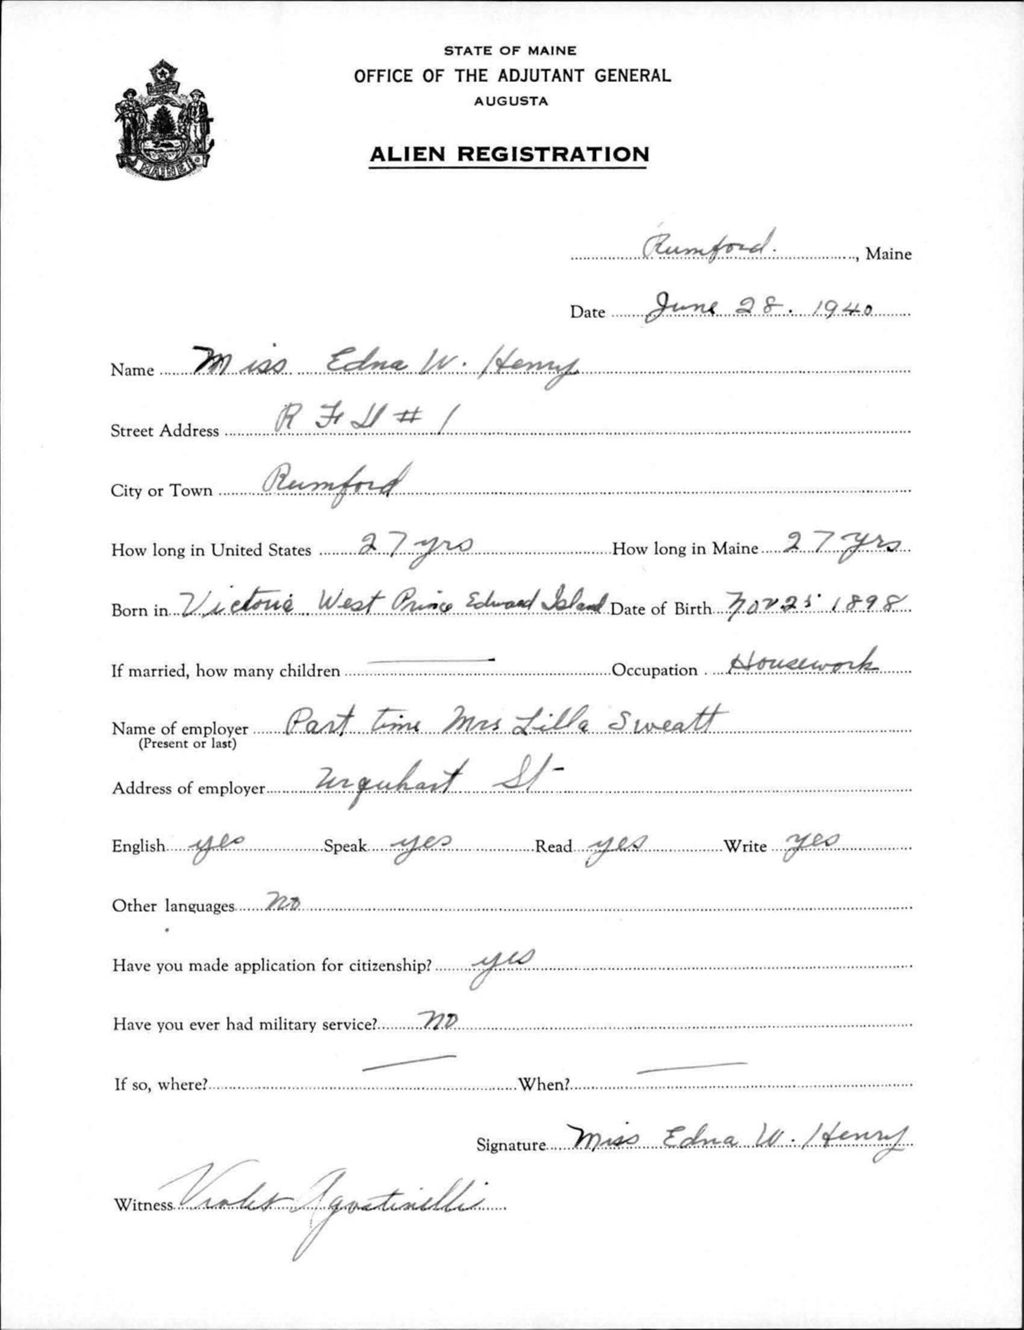 STATE OF MAINE
OFFICE OF THE ADJUTANT GENERAL
AUGUSTA
ALIEN REGISTRATION
MAINE
Rumford., Maine
Date June 28. 1940
Name Miss Edna W. Henry
Street Address R F D # 1
City or Town Rumford
How long in United States 27 yrs How long in Maine 27 yrs
Born in Victoria West Prince Edward Island Date of Birth Nov 25 1898
If married, how many children — Occupation Housework
Name of employer Part time Mrs Lilla Sweatt
(Present or last)
Address of employer Urquhart St-
English yes Speak yes Read yes Write yes
Other languages No
Have you made application for citizenship? yes
Have you ever had military service? No
If so, where? — When? —
Signature Miss Edna W. Henry
Witness Violet Agostinelli